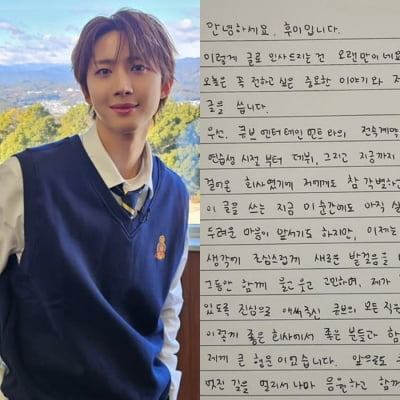 안녕하세요, 후이입니다.
이렇게 글로 인사드리는 건 오랜만이네요
오늘은 꼭 전하고 싶은 중요한 이야기와 저
글을 씁니다.
우선, 큐브 엔터테인먼트와의 전속계약
연습생 시절 부터 데뷔, 그리고 지금까지
걸어온 회사였기에 저에게도 참 각별하고
이 글을 쓰는 지금 이 순간에도 아직 실
두려운 마음이 앞서기도 하지만, 이제는
생각에 조심스럽게 새로운 발걸음을
그동안 함께 울고 웃고 고민하며, 제가
있도록 진심으로 애써주신 큐브의 모든 직원
이렇게 좋은 회사에서 좋은 분들과 함
제게 큰 행운이었습니다. 앞으로도
멋진 길을 멀리서 나마 응원하고 함께